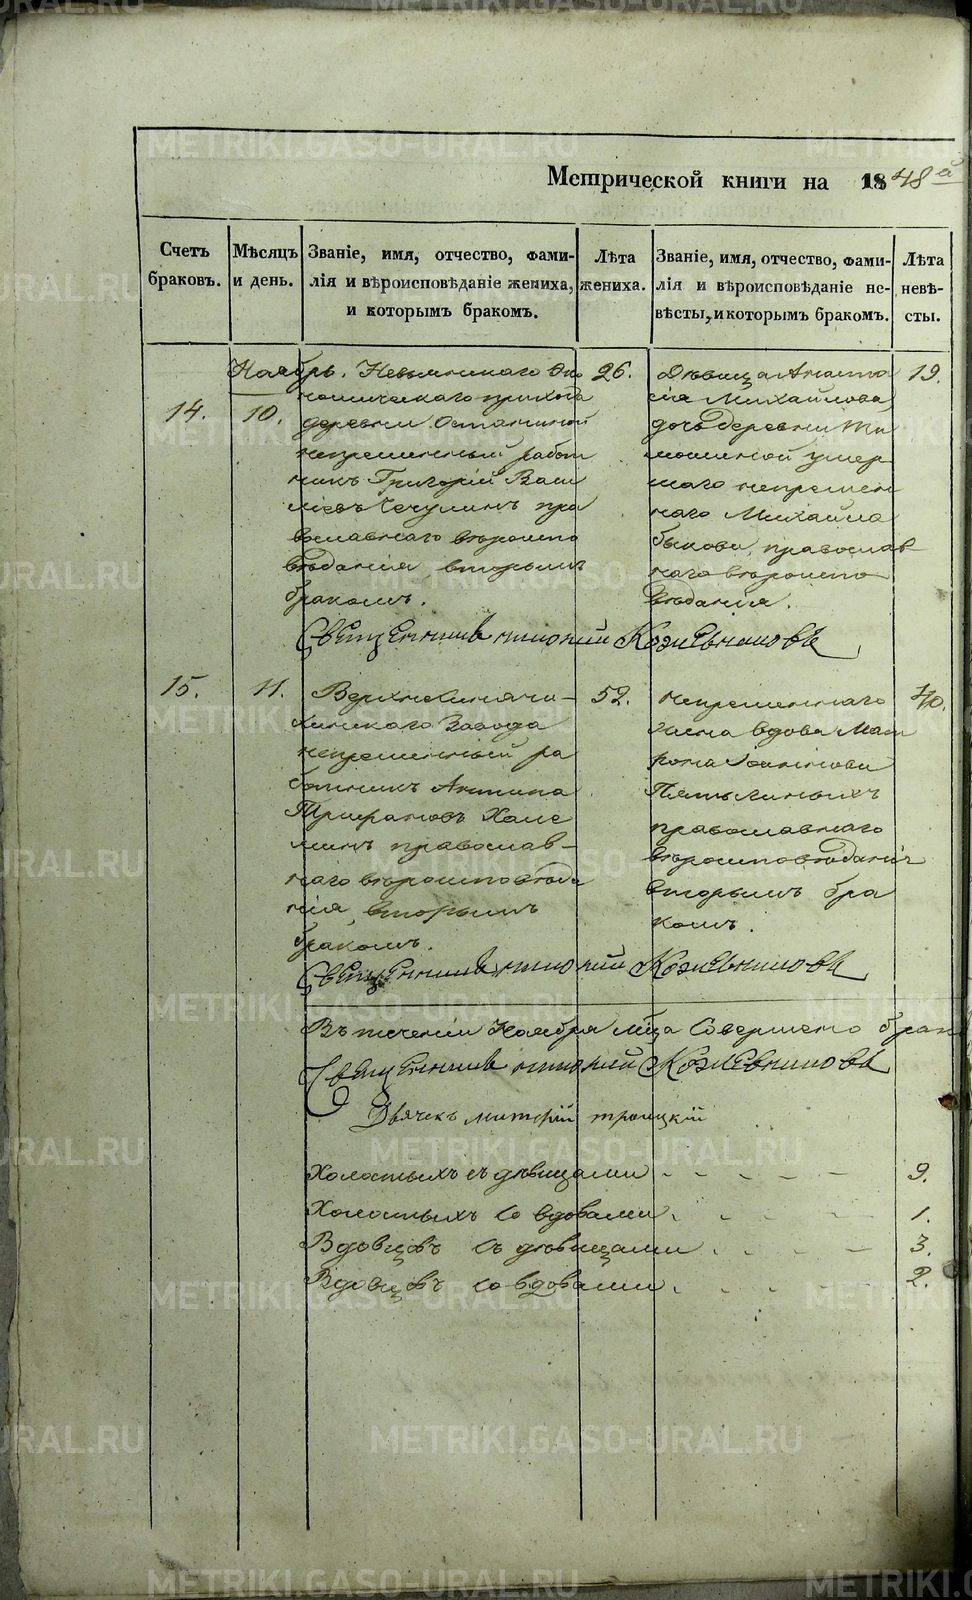 Метрической книги на 1848й
Счетъ браковъ.
Мѣсяцъ и день.
Званіе, имя, отчество, фами-
лія и вѣроисповѣданіе жениха,
и которымъ бракомъ.
Лѣта жениха.
Званіе, имя, отчество, фами-
лія и вѣроисповѣданіе не-
вѣсты, и которымъ бракомъ.
Лѣта невѣ-
сты.
14.
Ноябрь.
10.
Невьянскаго
прихода
деревни Останиной
непременный работ
никъ Григорій Васи
ліевъ Чечулинъ пра
вославнаго вѣроиспо
вѣданія, вторымъ
бракомъ.
26.
Дѣвица Анаста
сія Михайлова
дочь деревни Ти
мошиной умер
шаго непремен
наго Михайла
Быкова, православ
наго вѣроиспо
вѣданія.
19.
Священникъ Кожевниковъ
15.
11.
Верхнесинячи-
хинскаго Завода
непременный ра
ботникъ Антипа
Трифановъ
православ-
наго вѣроисповѣда
нія, вторымъ
бракомъ.
52.
непременнаго
жена вдова Мат
рона Іоаннова
православнаго
вѣроисповѣданія
вторымъ бра
комъ.
40.
Священникъ Кожевниковъ
Въ теченіи Ноября мца Совершено брак
Священникъ Кожевниковъ
Дьячекъ троицкій
Холостыхъ съ дѣвицами 9.
Холостыхъ со вдовами 1.
Вдовцевъ съ дѣвицами 3.
Вдовцевъ со вдовами 2.
METRIKI.GASO-URAL.RU